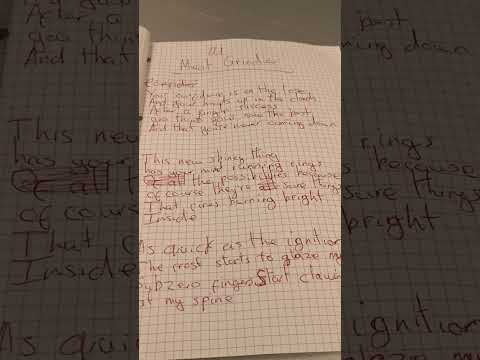 Meat Grinder
Consider
Your everything is on the line
And your hopes up in the clouds
After a forged success
you think your over the past
And that you're never coming down
This new shiney thing
has your mind running rings
Of all the possibilities because
of course they're all sure things
That fires burning bright
Inside
As quick as the ignition
The frost starts to glaze my
Sub zero fingers Start clawin
at my spine